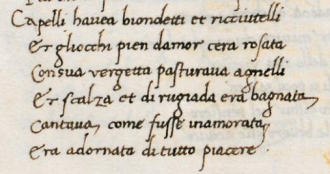 Capelli hauea biondetti et ricciutelli
Et gliocchi pien damor cera rosata
Con sua vergetta pasturaua agnelli
Et scalza et di rugiada era bagnata
Cantaua, come fusse inamorata
Era adornata di tutto piacere